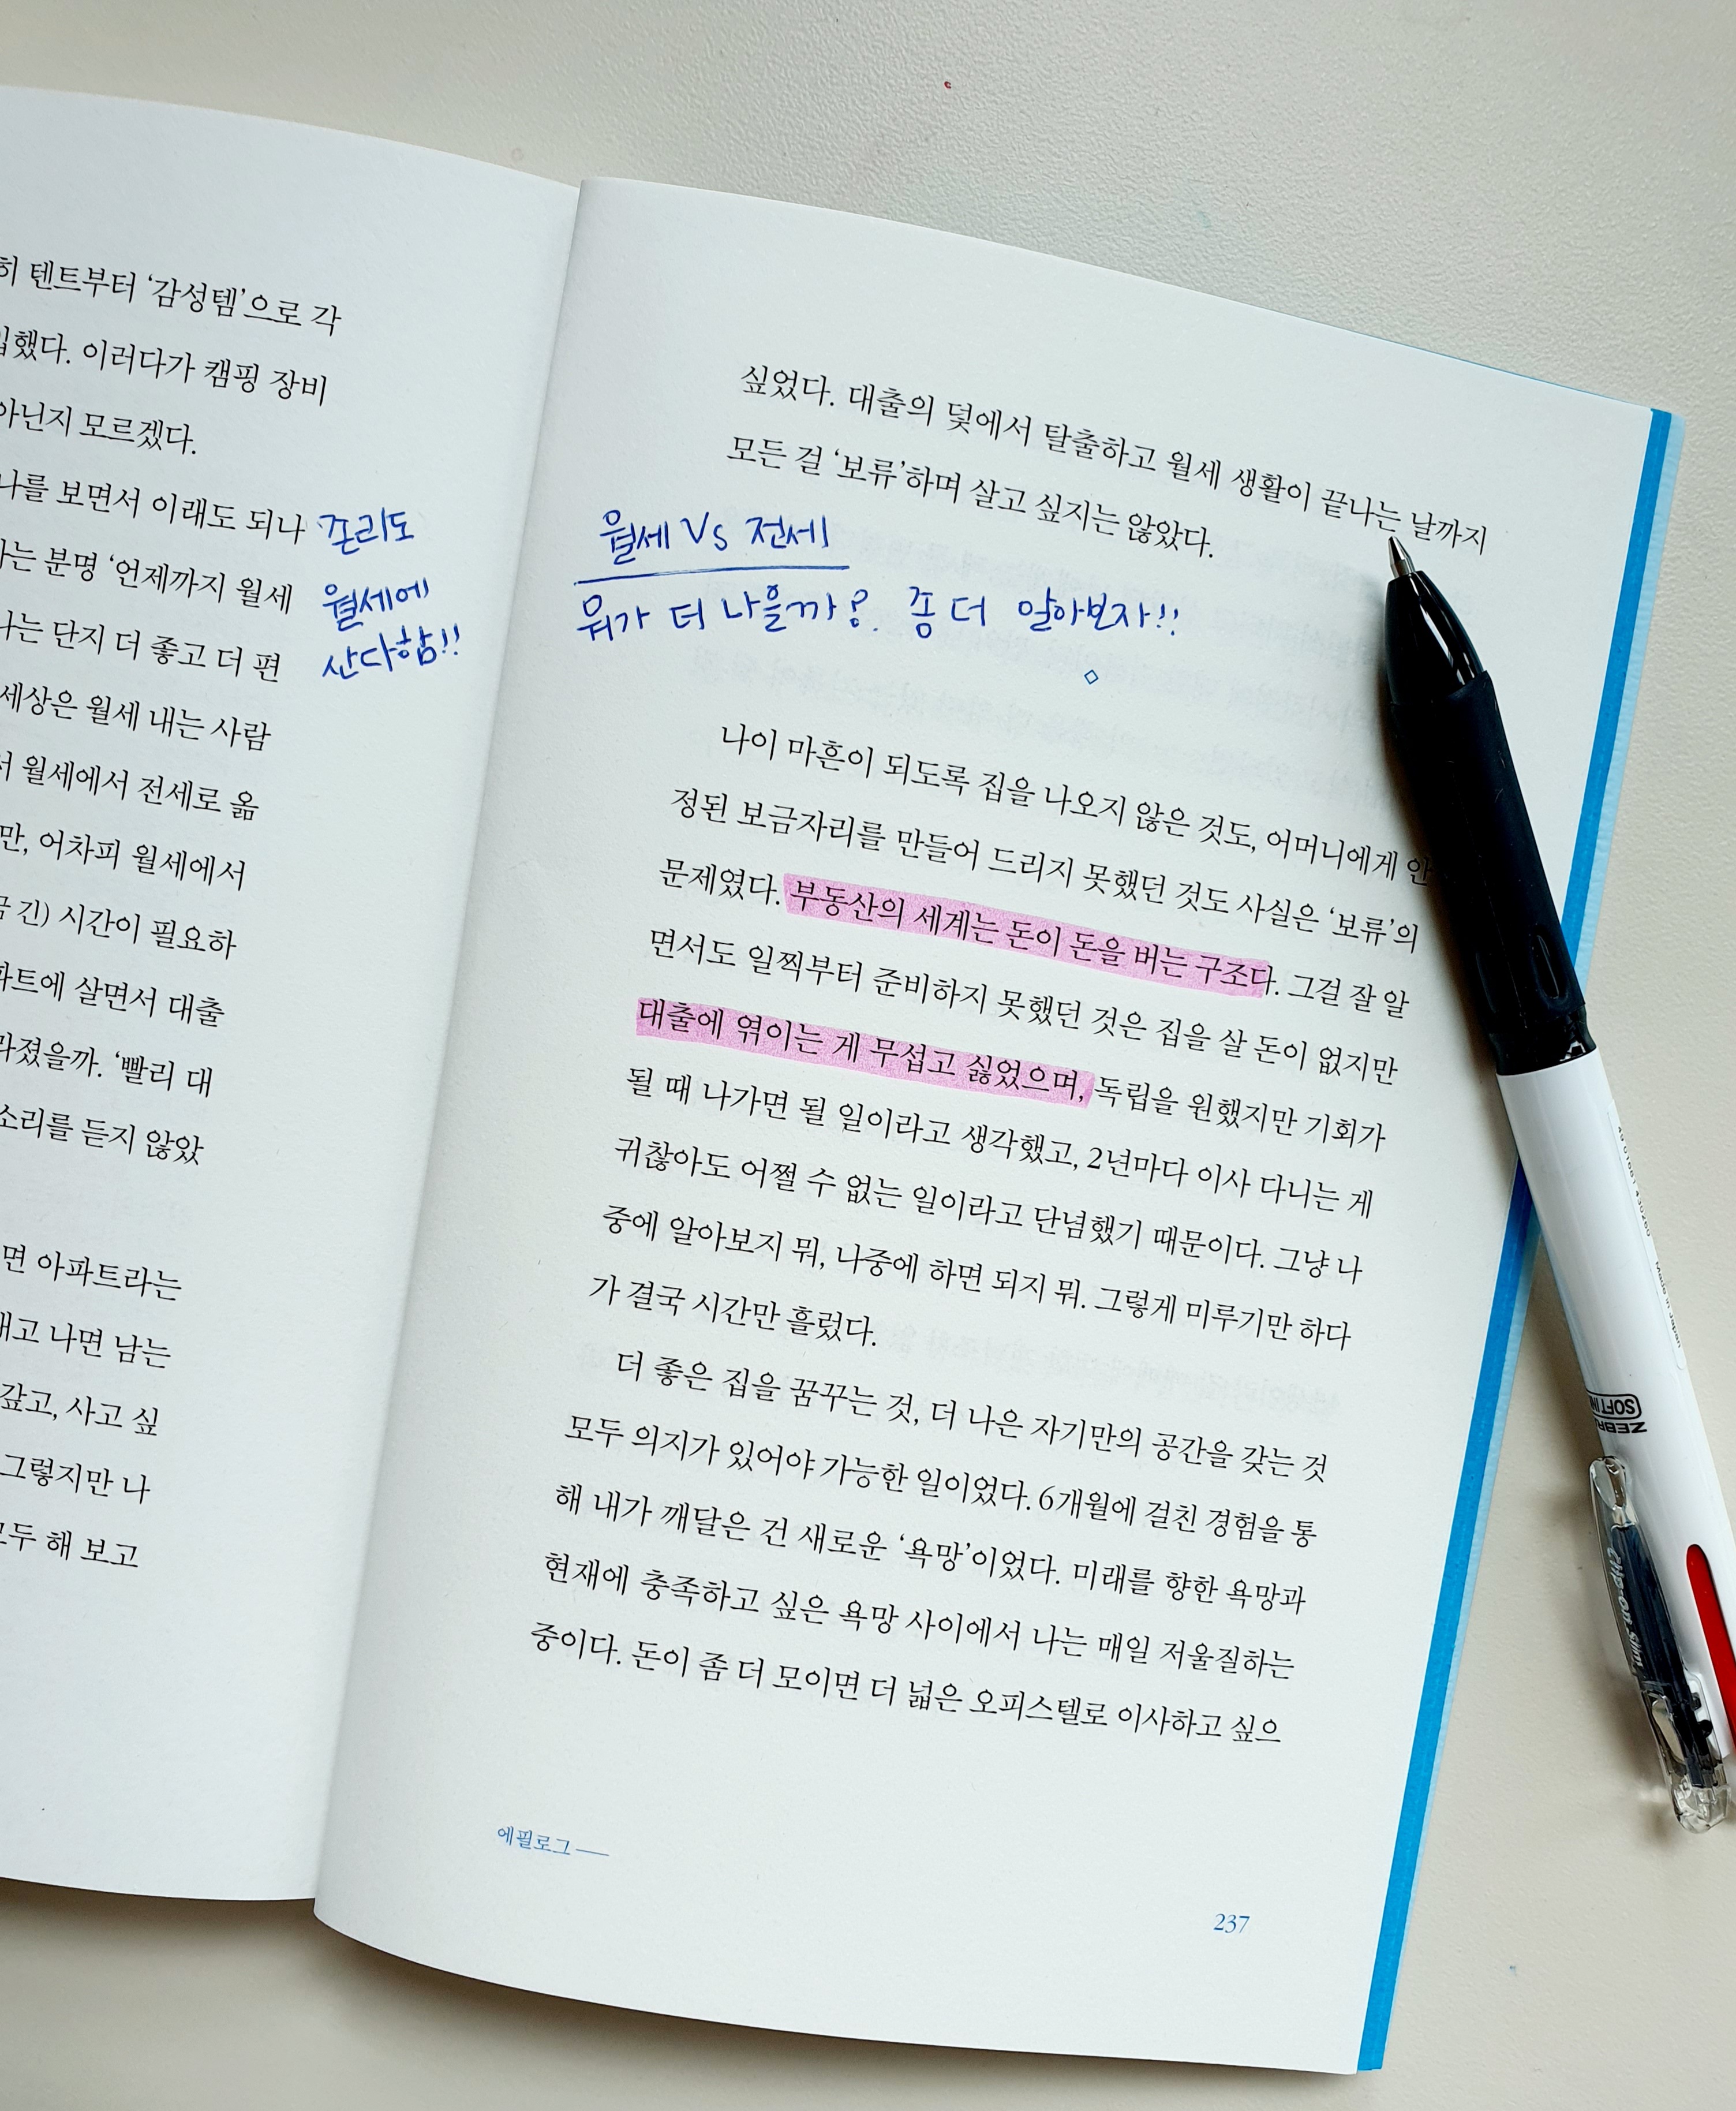 텐트부터 ‘감성템’으로 각
했다. 이러다가 캠핑 장비
아닌지 모르겠다.
나를 보면서 이래도 되나
는 분명 ‘언제까지 월세
나는 단지 더 좋고 더 편
세상은 월세 내는 사람
월세에서 전세로 옮
만, 어차피 월세에서
긴) 시간이 필요하
파트에 살면서 대출
졌을까. ‘빨리 대
소리를 듣지 않았
면 아파트라는
내고 나면 남는
갖고, 사고 싶
그렇지만 나
모두 해 보고
존리도
월세에
산다함!!
싶었다. 대출의 덫에서 탈출하고 월세 생활이 끝나는 날까지
모든 걸 ‘보류’하며 살고 싶지는 않았다.
월세 Vs 전세
뭐가 더 나을까? 좀 더 알아보자!!
나이 마흔이 되도록 집을 나오지 않은 것도, 어머니에게 안
정된 보금자리를 만들어 드리지 못했던 것도 사실은 ‘보류’의
문제였다. 부동산의 세계는 돈이 돈을 버는 구조다. 그걸 잘 알
면서도 일찍부터 준비하지 못했던 것은 집을 살 돈이 없지만
대출에 엮이는 게 무섭고 싫었으며, 독립을 원했지만 기회가
될 때 나가면 될 일이라고 생각했고, 2년마다 이사 다니는 게
귀찮아도 어쩔 수 없는 일이라고 단념했기 때문이다. 그냥 나
중에 알아보지 뭐, 나중에 하면 되지 뭐. 그렇게 미루기만 하다
가 결국 시간만 흘렀다.
더 좋은 집을 꿈꾸는 것, 더 나은 자기만의 공간을 갖는 것
모두 의지가 있어야 가능한 일이었다. 6개월에 걸친 경험을 통
해 내가 깨달은 건 새로운 ‘욕망’이었다. 미래를 향한 욕망과
현재에 충족하고 싶은 욕망 사이에서 나는 매일 저울질하는
중이다. 돈이 좀 더 모이면 더 넓은 오피스텔로 이사하고 싶으
에필로그
237
ZEBRA
SOFT INK
Clip-on slim